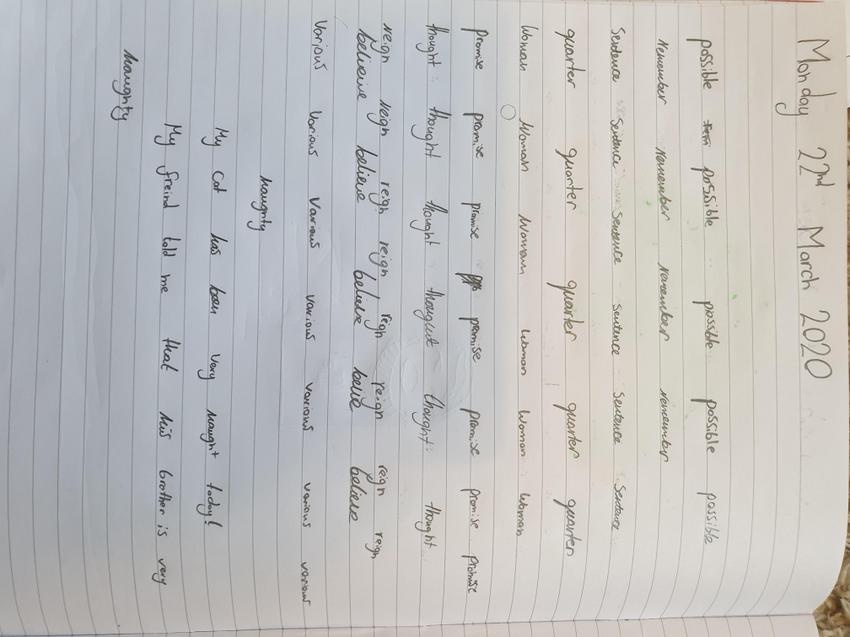 Monday 22nd March 2020
possible possible possible possible possible
remember remember remember remember
Sentence Sentence Sentence Sentence Sentence Sentence
quarter quarter quarter quarter quarter
Woman Woman Woman woman woman woman
promise promise promise promise promise promise promise
thought thought thought thought thought thought
reign reign reign reign reign reign reign reign
beleive believe believe belie believe
Various Various Various various various various various
Naughty
My cat has been very naught today!
My freind told me that his brother is very
Naughty